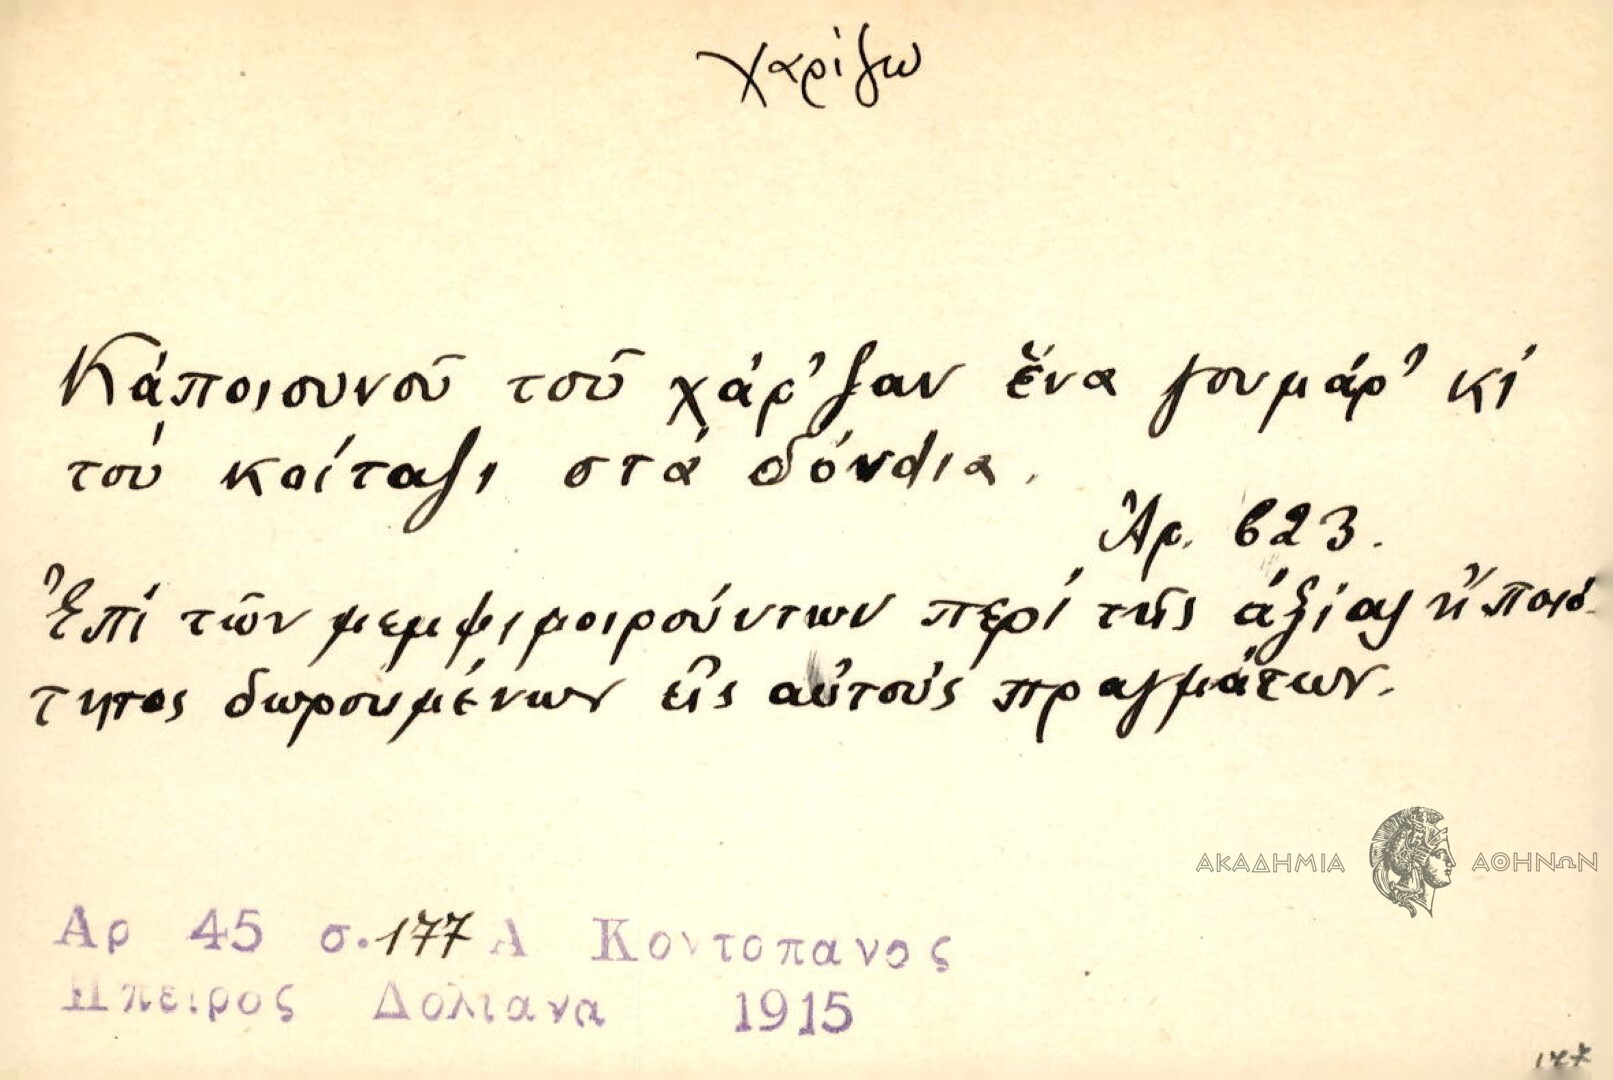 χαρίζω
Κάποιουνοῦ τοῦ χάρ'ξαν ἕνα γουμάρ' κὶ
τοὺ κοίταξι στὰ δόνdια.
Ἀρ. 623.
Ἐπὶ τῶν μεμψιμοιρούντων περὶ τῆς ἀξίας ἢ ποιό-
τητος δωρουμένων εἰς αὐτοὺς πραγμάτων.
ΑΚΑΔΗΜΙΑ ΑΘΗΝΩΝ
Αρ 45 σ. 177 Α Κοντοπανος
Ηπειρος Δολιανα 1915
177